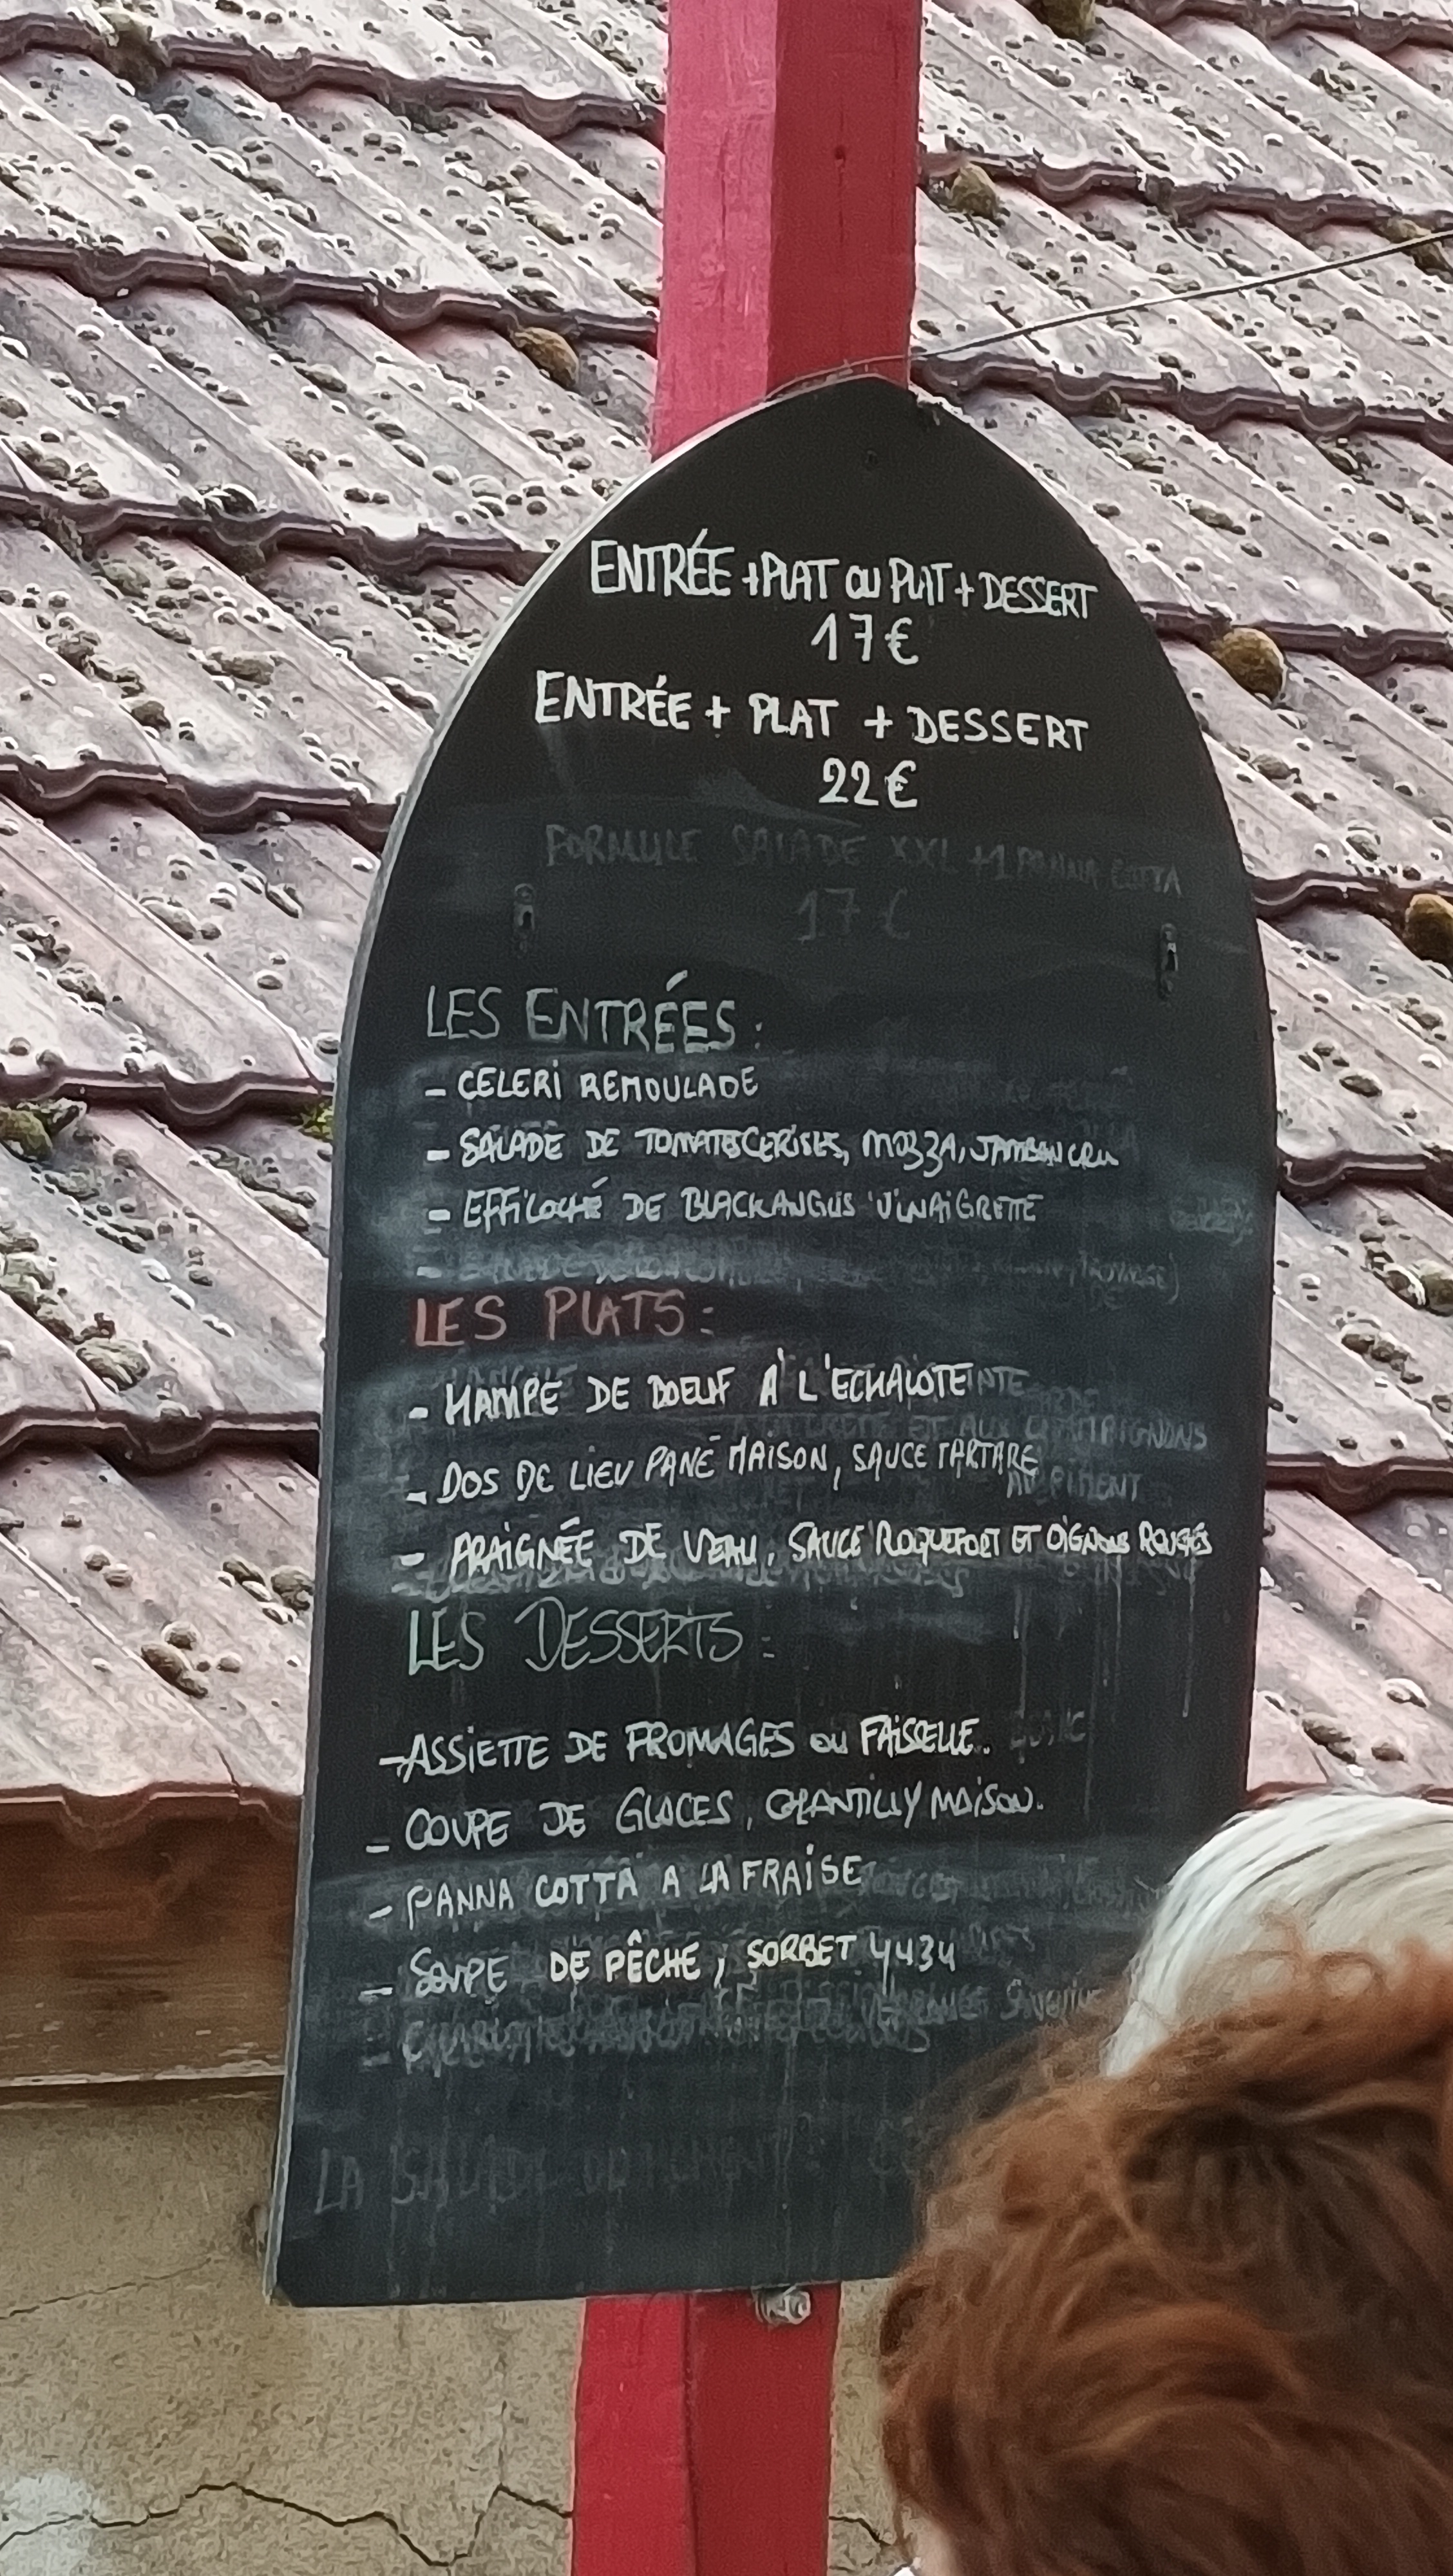 ENTRÉE + PLAT OU PLAT + DESSERT
17€
ENTRÉE + PLAT + DESSERT
22€
FORMULE SALADE XXL +1 PANNA COTTA
17€
LES ENTRÉES :
- CELERI REMOULADE
- SALADE DE TOMATES CERISES, MOZZA, JAMBON CRU
- EFFILOCHÉ DE BLACK ANGUS VINAIGRETTE
LES PLATS :
- HAMPE DE BOEUF À L'ECHALOTE
- DOS DE LIEU PANÉ MAISON, SAUCE TARTARE
- ARAIGNÉE DE VEAU, SAUCE ROQUEFORT ET OIGNONS ROUGES
LES DESSERTS :
- ASSIETTE DE FROMAGES OU FAISSELLE.
- COUPE DE GLACES, CHANTILLY MAISON.
- PANNA COTTA A LA FRAISE
- SOUPE DE PÊCHE, SORBET